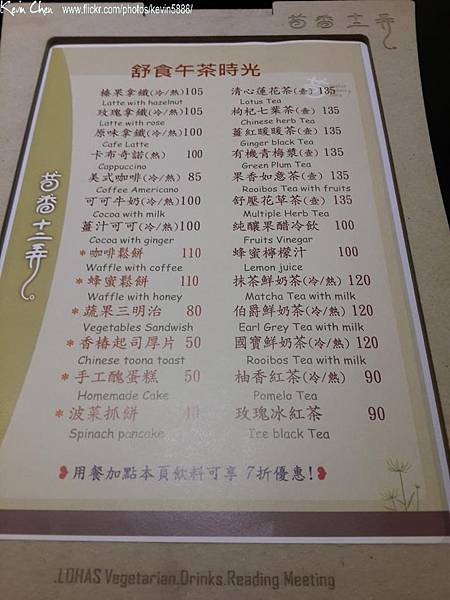 Kevin Chen / www.flickr.com/photos/kevin5888/
茴香十二弄
舒食午茶時光
榛果拿鐵(冷/熱)105
Latte with hazelnut
玫瑰拿鐵(冷/熱)105
Latte with rose
原味拿鐵(冷/熱)100
Cafe Latte
卡布奇諾(熱) 100
Cappuccino
美式咖啡(冷/熱) 85
Coffee Americano
可可牛奶(冷/熱)100
Cocoa with milk
薑汁可可(冷/熱)100
Cocoa with ginger
*咖啡鬆餅 110
Waffle with coffee
*蜂蜜鬆餅 110
Waffle with honey
*蔬果三明治 80
Vegetables Sandwish
*香椿起司厚片 50
Chinese toona toast
*手工醜蛋糕 50
Homemade Cake
*菠菜抓餅 40
Spinach pancake
清心蓮花茶(壺)135
Lotus Tea
枸杞七葉茶(壺)135
Chinese herb Tea
薑紅暖暖茶(壺)135
Ginger black Tea
有機青梅漿(壺)135
Green Plum Tea
果香如意茶(壺)135
Rooibos Tea with fruits
舒壓花草茶(壺)135
Multiple Herb Tea
純釀果醋冷飲 100
Fruits Vinegar
蜂蜜檸檬汁 100
Lemon juice
抹茶鮮奶茶(冷/熱)120
Matcha Tea with milk
伯爵鮮奶茶(冷/熱)120
Earl Grey Tea with milk
國寶鮮奶茶(冷/熱)120
Rooibos Tea with milk
柚香紅茶(冷/熱) 90
Pomelo Tea
玫瑰冰紅茶 90
Ice black Tea
❥用餐加點本頁飲料可享 7折優惠!❥
茴香十二弄。
.LOHAS Vegetarian.Drinks.Reading Meeting